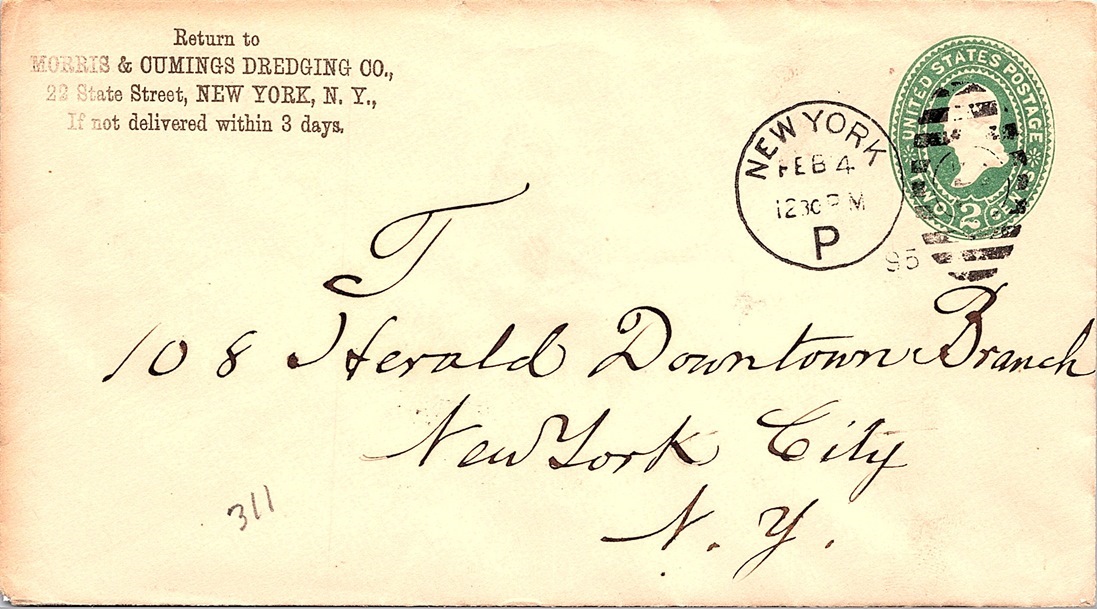 Return to
MORRIS & CUMINGS DREDGING CO.,
22 State Street, NEW YORK, N. Y.,
If not delivered within 3 days.
UNITED STATES POSTAGE
TWO 2
NEW YORK
FEB 4
1230 PM
P
95
T
108 Herald Downtown Branch
New York City
N. Y.
311